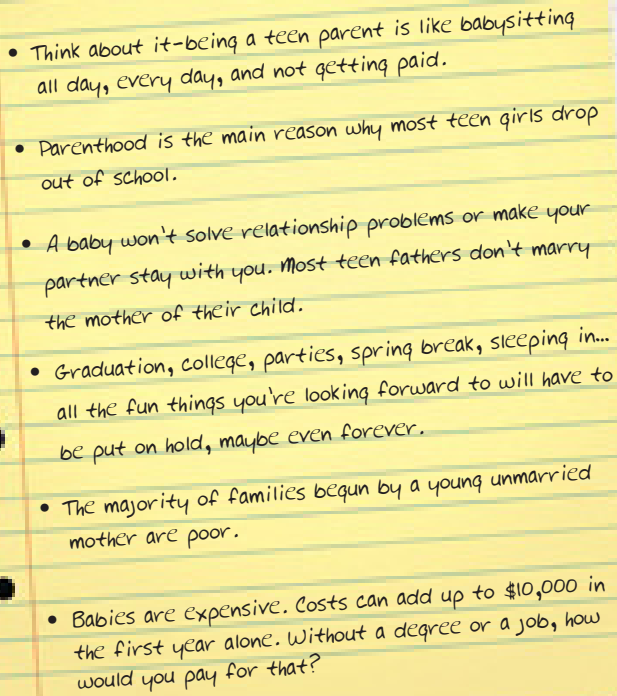 • Think about it-being a teen parent is like babysitting
all day, every day, and not getting paid.
• Parenthood is the main reason why most teen girls drop
out of school.
• A baby won't solve relationship problems or make your
partner stay with you. Most teen fathers don't marry
the mother of their child.
• Graduation, college, parties, spring break, sleeping in...
all the fun things you're looking forward to will have to
be put on hold, maybe even forever.
• The majority of families begun by a young unmarried
mother are poor.
• Babies are expensive. Costs can add up to $10,000 in
the first year alone. Without a degree or a job, how
would you pay for that?